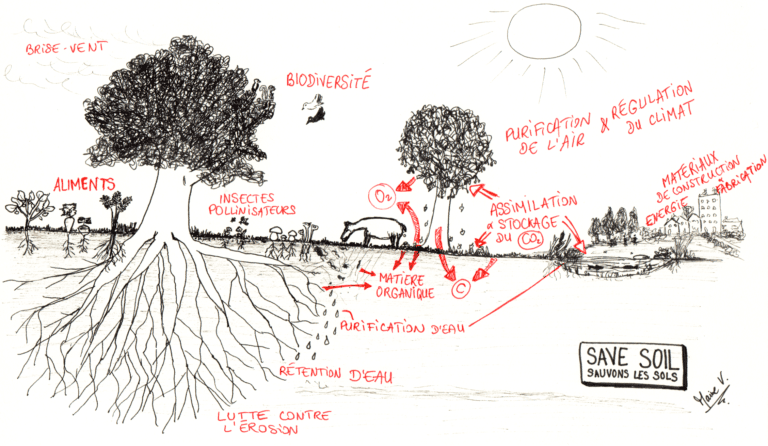 BRISE-VENT
BIODIVERSITÉ
PURIFICATION
DE L'AIR
& RÉGULATION
DU CLIMAT
ALIMENTS
INSECTES
POLLINISATEURS
O₂
ASSIMILATION
& STOCKAGE
DU CO₂
MATÉRIAUX
DE CONSTRUCTION
& FABRICATION
ENERGIE
MATIERE
ORGANIQUE
C
PURIFICATION D'EAU
RÉTENTION D'EAU
LUTTE CONTRE
L'ÉROSION
SAVE SOIL
SAUVONS LES SOLS
Marie V.